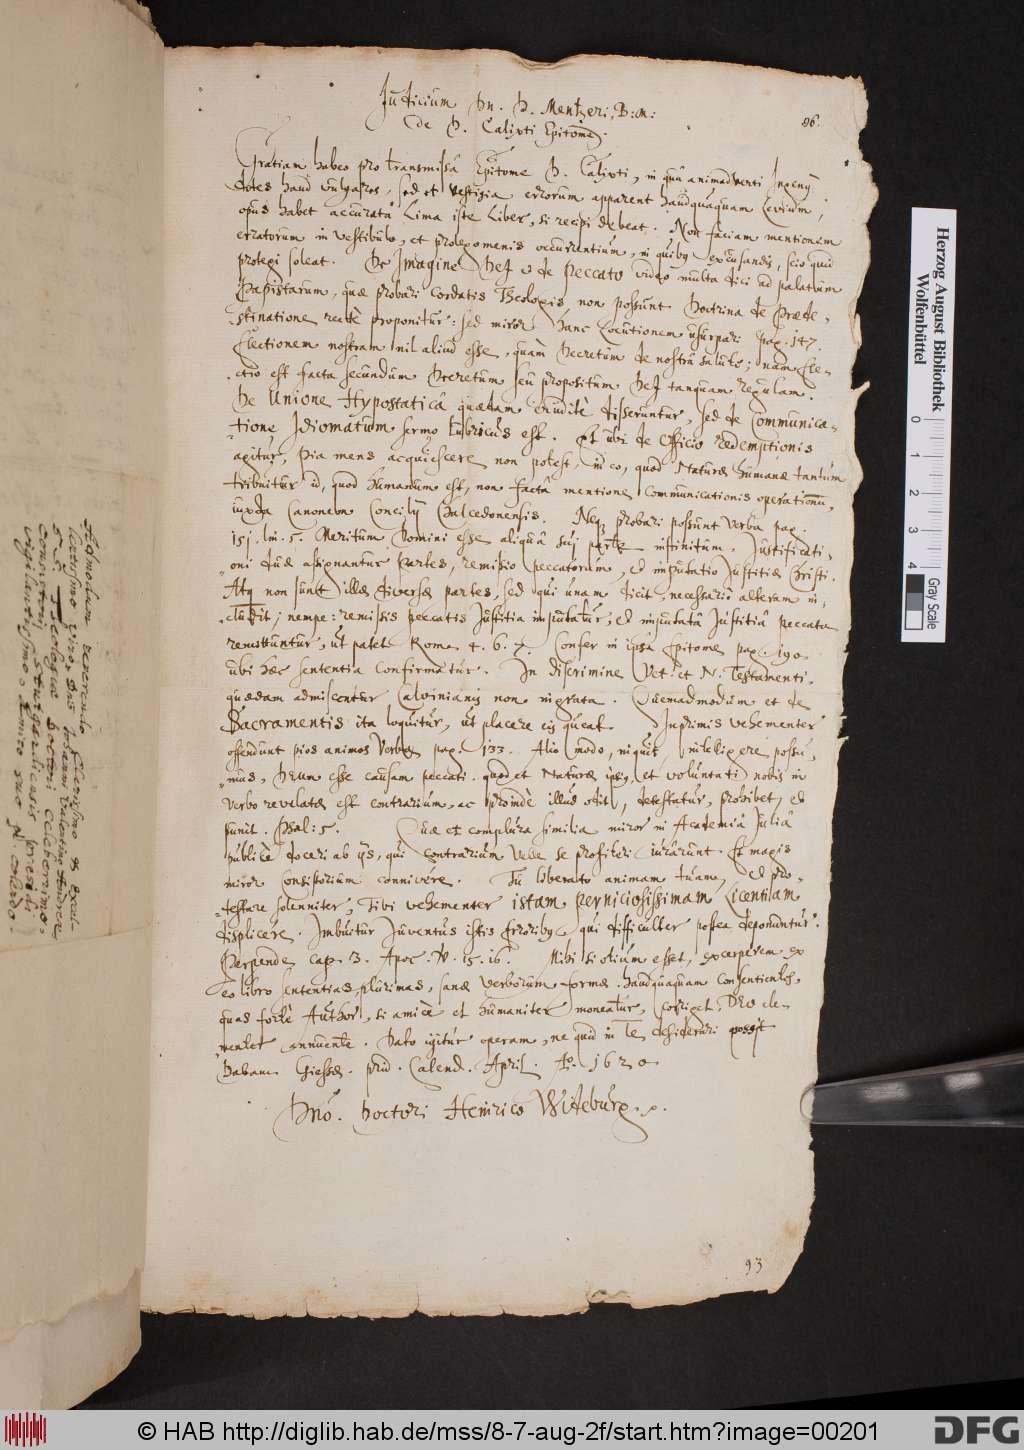 Judicium Dn. D. Mentzeri, B: M:
de D. Calixti Epitome.
86.
Gratiam habeo pro transmissâ Epitome D. Calixti, in quâ animadverti Ingenij
dotes haud vulgares, sed et vestigia errorum apparent haudquaquam levium;
opus habet accuratâ Lima iste Liber, si recipi debeat. Non faciam mentionem
erratorum in vestibulo, et prolegomenis occurrentium, in quibus excusandis, scio quid
protegi soleat. De Imagine Dej et de peccato video multa dici ad palatum
Papistarum, quæ probari cordatis Theologis non possunt. Doctrina de Præde-
stinatione rectè proponitur: sed miror hanc locutionem usurpari pag. 147.
Electionem nostram nil aliud esse, quàm Decretum de nostrâ salute; nam Ele-
ctio est facta secundum Decretum seu propositum Dej tanquam regulam.
De Unione Hypostaticâ quædam eruditè disseruntur, sed de Communica-
tione Idiomatum sermo lubricus est. Et ubi de Officio redemptionis
agitur, pia mens acquiescere non potest, in eo, quod Naturæ humanæ tantùm
tribuitur id, quod humanum est, non factâ mentione communicationis operationum,
iuxta Canonem Concilij Chalcedonensis. Neq probari possunt verba pag.
151. lin. 5. Meritum Domini esse aliquâ suj parte infinitum. Justificati-
oni duæ assignantur partes, remissio peccatorum, et imputatio Justitiæ Christi.
Atq non sunt illæ diversæ partes, sed qui unam dicit, necessariò alteram in-
cludit; nempe: remissis peccatis Justitia imputatur, et imputatâ Justitiâ peccata
remittuntur, ut patet Rom. 4. 6. 7. Confer in ipsa Epitome pag. 190.
ubi hæc sententia confirmatur. In discrimine Vet: et N: Testamenti.
quædam admiscentur Calvinianis non ingrata. Quemadmodum et de
Sacramentis ita loquitur, ut placere eis queat. Inprimis vehementer
offendunt pios animos verba pag. 133. Alio modo, inquit, intelligere possu-
mus, Deum esse causam peccati. quod et Naturæ ipsius, et voluntati nobis in
verbo revelatæ est contrarium, ac proinde illud odit, detestatur, prohibet, et
punit. Psal: 5. Quæ et complura similia miror in Academiâ Juliâ
publicè doceri ab ijs, qui contrarium velle se profiteri iurârunt. Et magis
miror Consistorium connivere. Tu liberato animam tuam, et pro-
testare solenniter; Tibi vehementer istam perniciosissimam Licentiam
displicere. Imbuitur Juventus istis erroribus qui difficulter postea deponuntur.
Perpende cap. 3. Apoc. v. 15. 16. Mihi si otium esset, excerperem ex
eo libro sententias plurimas, sanæ verborum formæ haudquaquam consentientes,
quas fortè Author, si amicè et humaniter moneatur, corriget, Deo cle-
menter annuente. Dato igitur operam, ne quid in Te desiderari possit
Dabam Giessæ. prid. Calend. April. Ao. 1620
Dno. Doctori Heinrico Wideburg.
93
Herzog August Bibliothek
Wolfenbüttel
0 1 2 3 4
Gray Scale
© HAB http://diglib.hab.de/mss/8-7-aug-2f/start.htm?image=00201
DFG